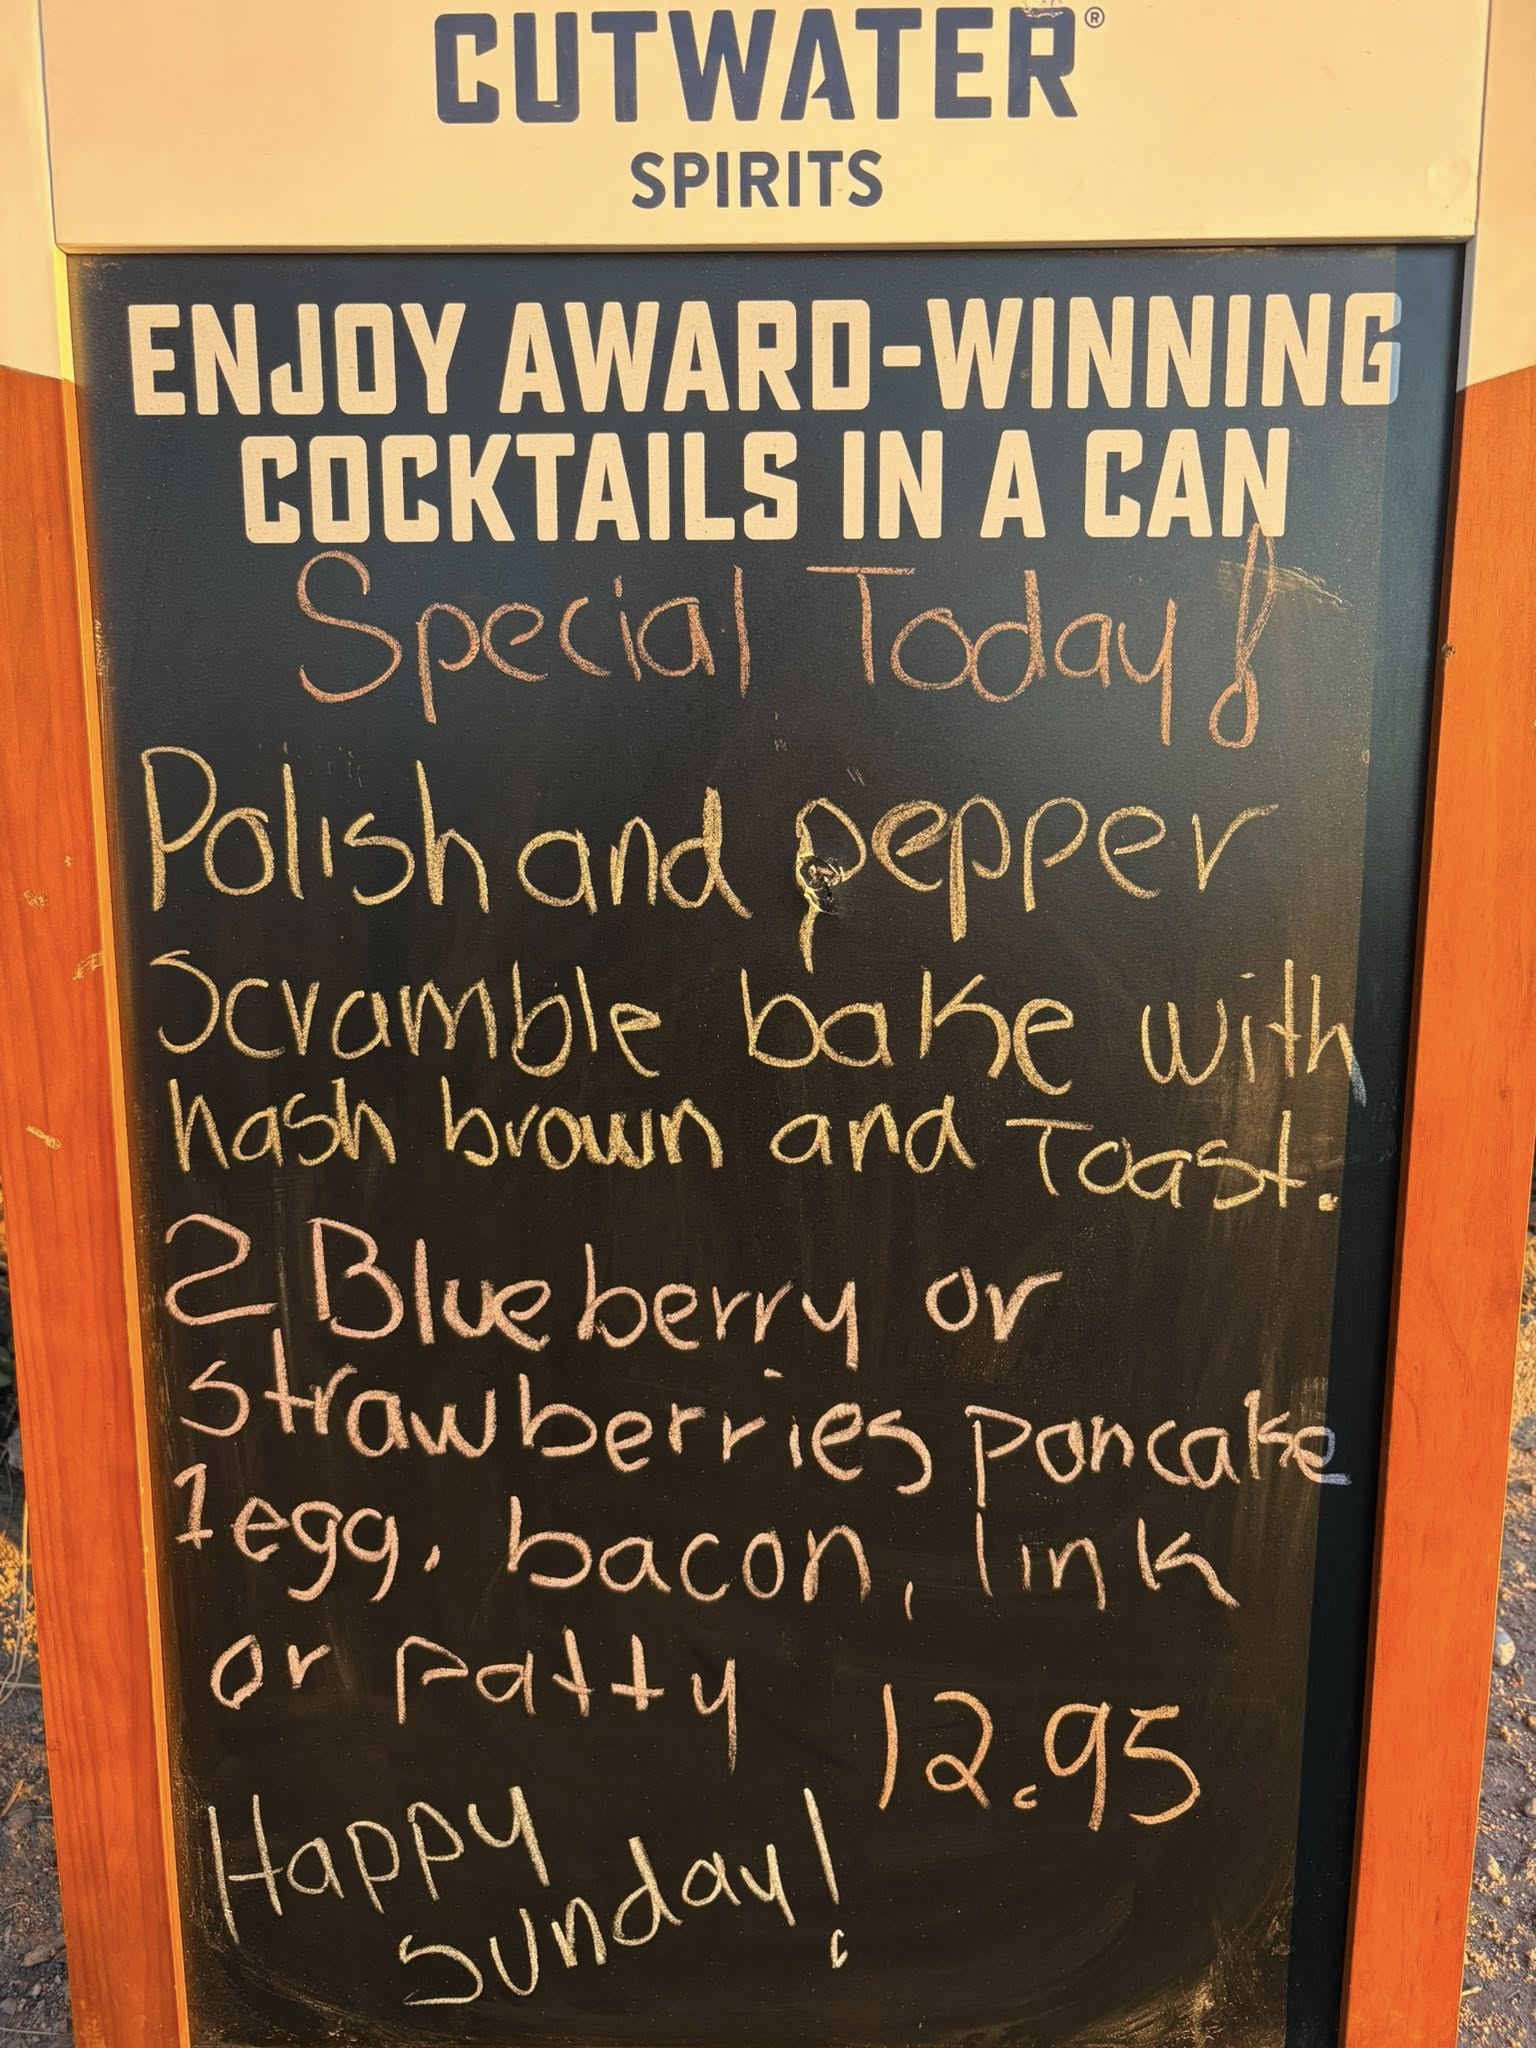 CUTWATER®
SPIRITS
ENJOY AWARD-WINNING
COCKTAILS IN A CAN
Special Today!
Polish and pepper
scramble bake with
hash brown and Toast.
2 Blueberry or
strawberries pancake
1 egg, bacon, link
or patty 12.95
Happy
sunday!